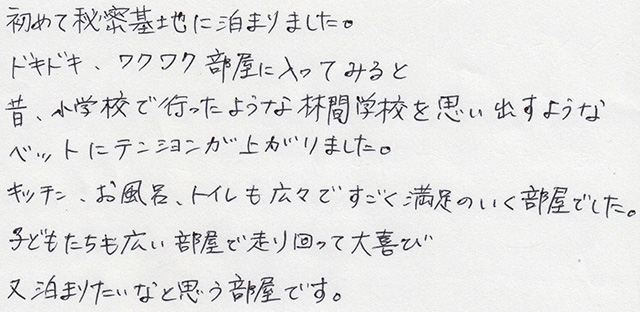 初めて秘密基地に泊まりました。
ドキドキ、ワクワク部屋に入ってみると
昔、小学校で行ったような林間学校を思い出すような
ベットにテンションが上がりました。
キッチン、お風呂、トイレも広々ですごく満足のいく部屋でした。
子どもたちも広い部屋で走り回って大喜び
又泊まりたいなと思う部屋です。